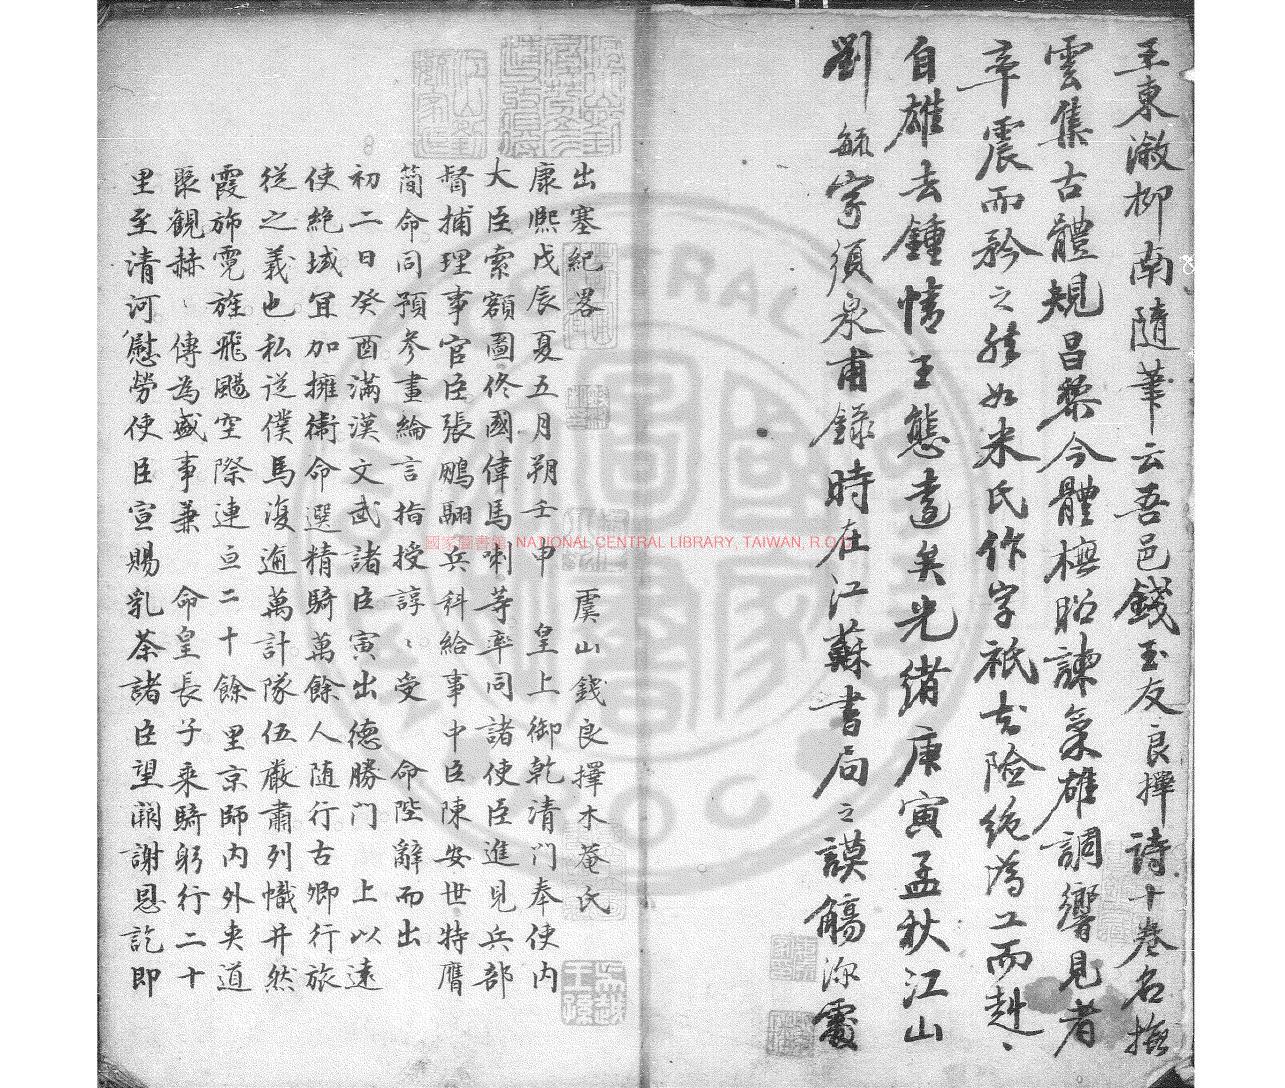 王東漵柳南隨筆云吾邑錢玉友良擇詩十卷名撫
雲集古體規昌黎今體橅眎諫氣雄調響見者
卒震而矜之然如米氏作字祇求險絕為工而趐、
自雄去鍾情王態遠矣光緒庚寅孟秋江山
劉毓家須泉甫錄時在江蘇書局之謨觴深處
出塞紀畧 虞山錢良擇木菴氏
康熙戊辰夏五月朔壬申 皇上御乾清門奉使內
大臣索額圖佟國偉馬喇等率同諸使臣進見兵部
督捕理事官臣張鵬翮兵科給事中臣陳安世特膺
簡命同預參畫綸言指授諄、受 命陛辭而出
初二日癸酉滿漢文武諸臣寅出德勝門 上以遠
使絕域宜加擁衛命選精騎萬餘人隨行古卿行旅
從之義也私從僕馬復逾萬計隊伍嚴肅列幟井然
霞斾霓旌飛颺空際連亘二十餘里京師內外夾道
聚觀赫、傳為盛事兼 命皇長子乘騎躬行二十
里至清河慰勞使臣宣賜乳茶諸臣望闕謝恩訖即
國家圖書館 NATIONAL CENTRAL LIBRARY, TAIWAN, R.O.C